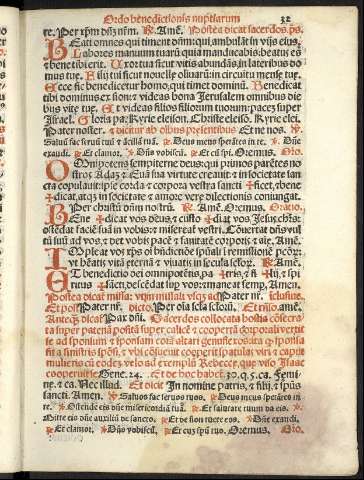 Ordo benedictionis nuptiarum 32
re. Per xp̃m dñm nr̃m. ℟. Amē. Postea dicat sacerdos. ps.
BEati omnes qui timent dñm: qui ambulāt in vijs eius.
Labores manuum tuarū quia manducabis: beatus es
& bene tibi erit. Uxor tua sicut vitis abundās: in lateribus do
mus tue. Filij tui sicut nouelle oliuarū: in circuitu mense tue.
Ecce sic benedicetur homo: qui timet dominū. Benedicat
tibi dominus ex sion: & videas bona Jerusalem omnibus die
bus vite tue. Et videas filios filiorum tuorum: pacem super
Israel. Gloria pa. Kyrie eleison. Christe eleisō. Kyrie elei.
Pater noster. & dicitur ab oībus presentibus Et ne nos. ℣
Saluū fac seruū tuū & ācillā tuā. ℟ Deus meus sperātes in te. ℣ Dñe
exaudi. ℟ Et clamor. ℣ Dñs vobiscū. ℟ Et cū spi. Oremus. Oro
OMnipotens sempiterne deus: qui primos parētes no
stros Adaz & Euā sua virtute creauit & in societate san
cta copulauit: ipse corda & corpora vestra sancti ✠ ficet, & bene
✠ dicat, atqȝ in societate & amore vere dilectionis coniungat.
Per christū dñm nostrū. ℟. Amē. Oremus. Oratio.
BEne ✠ dicat vos deus, & custo ✠ diat vos Jesus christꝰ:
ostēdat faciē suā in vobis: & misereat vestri. Cōuertat dñs vul
tū suū ad vos, & det vobis pacē & sanitatē corporis & aīe, Amē.
IMpleat vos xp̃s oī bñdictiōe spūali ī remissionē pctōrꝫ:
vt hēatis vitā eternā & viuatis in secula seclorꝫ. ℟. Amē.
ET benedictio dei omnipotētis, pa ✠ tris, & fi ✠ lij, & spi
ritus ✠ sāctī, descēdat sup vos: & maneat semp, Amen.
Postea dicat missā: vt in missali vsqȝ ad Pater nr̃. īclusiue.
Et post Pater nr̃. dicto, Per oīa scl̃a sclorꝫ. Et r̃nso. amē.
Anteqȝ dicat Pax dñi. Sacerdos collocata hostia cōsecra
ta super patenā posita super calicē & cooperta corporali vertit
se ad sponsum & sponsam corā altari genuflexos: ita qȝ sponsa
sit a sinistris spōsi, & vbi cōsuenit cooperit spatulas viri & caput
mulieris cū eodez velo: ad exemplū Rebecce, que viso Isaac
cooperuit se Gene. 24. Et de hoc habet. 30. q. 5. ca. Femi
ne, & ca. Nec illud. Et dicit In nomine patris, & filij, & spūs
sancti. Amen. ℣ Saluos fac seruos tuos. ℟ Deus meus sperātes in
te. ℣ Ostende eis dñe misericordiā tuā. ℟ Et salutare tuum da eis. ℣
Mitte eis dñe auxiliū de sancto. ℟ Et de sion tuere eos. ℣ Dñe exaudi.
℟ Et clamor. ℣ Dñs vobiscū. ℟ Et cuz spū tuo. Oremus. Oro.